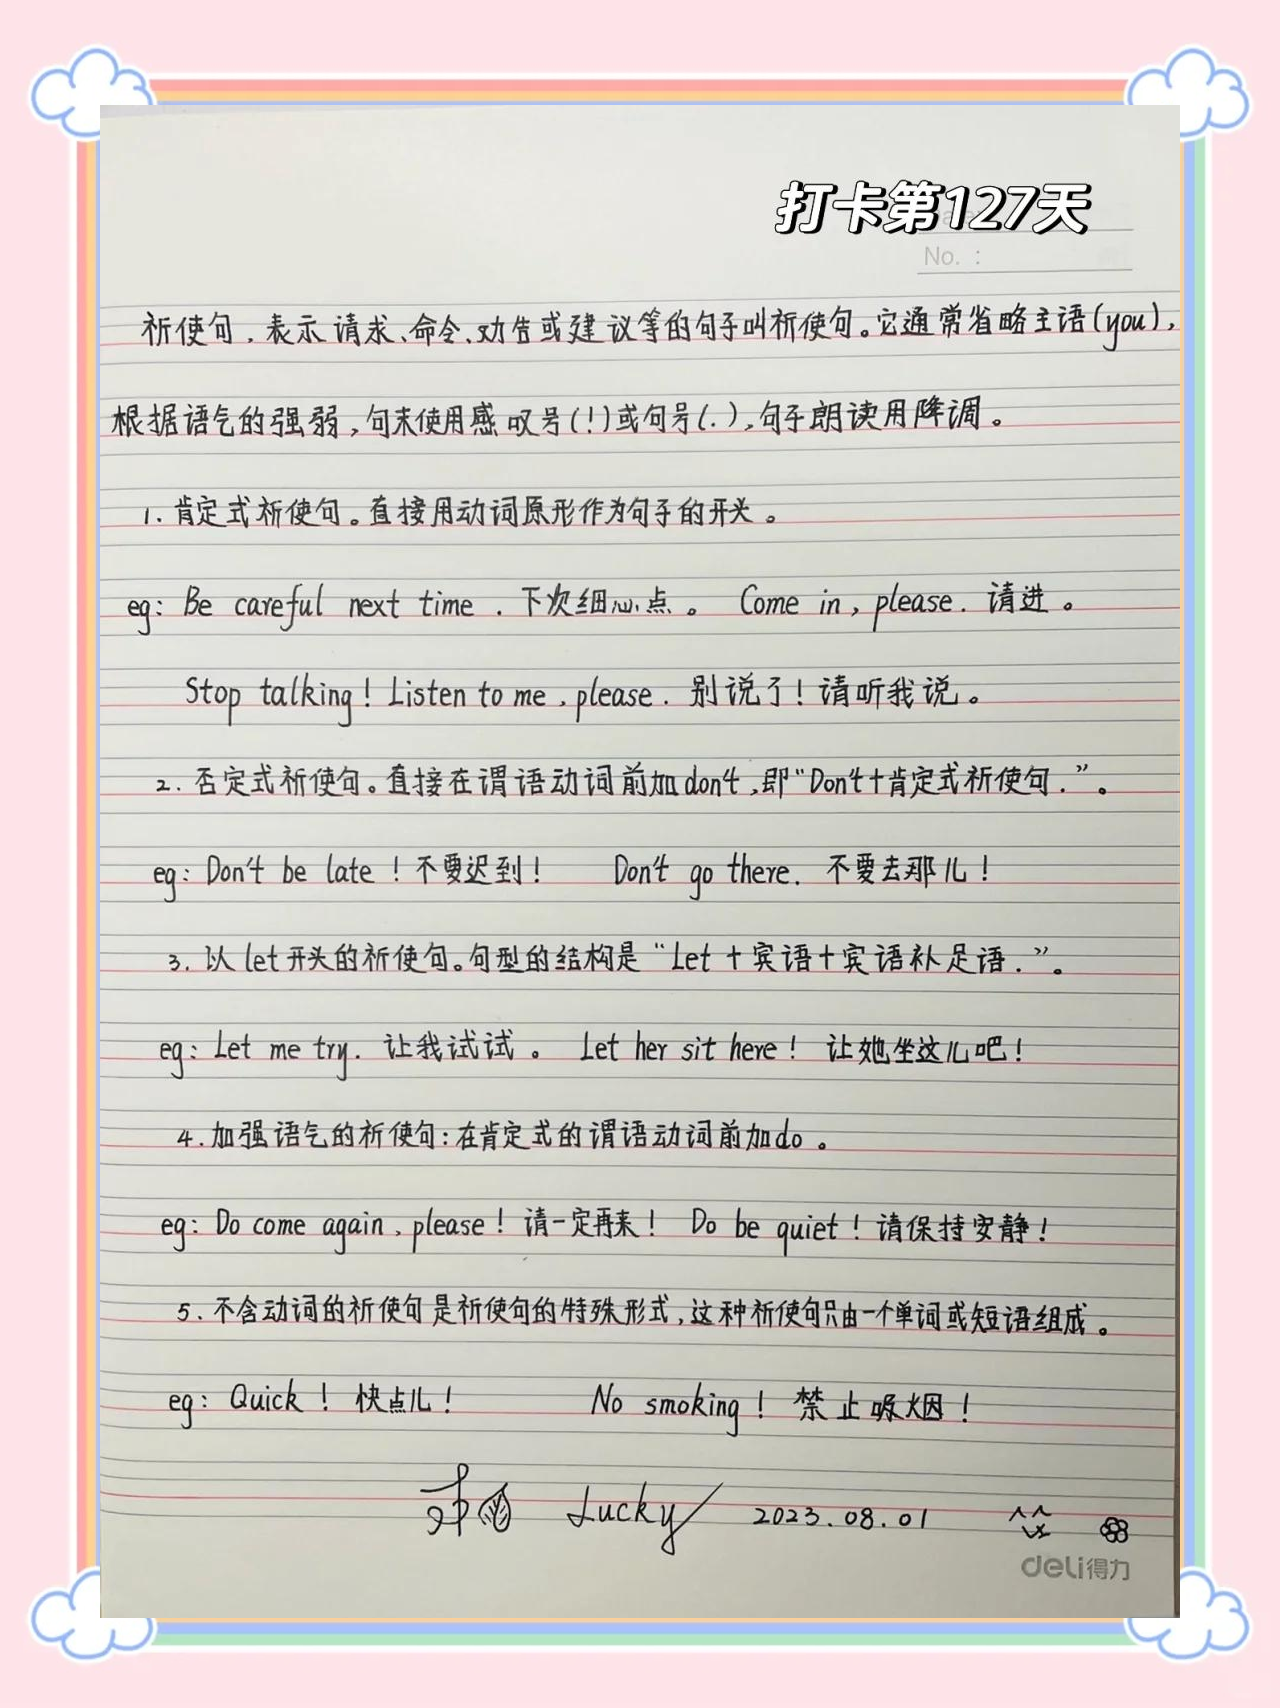 打卡第127天
No. :
祈使句,表示请求、命令、劝告或建议等的句子叫祈使句。它通常省略主语(you),
根据语气的强弱,句末使用感叹号(!)或句号(.),句子朗读用降调。
1.肯定式祈使句。直接用动词原形作为句子的开头。
eg: Be careful next time.下次细心点。 Come in, please.请进。
Stop talking! Listen to me, please.别说了!请听我说。
2.否定式祈使句。直接在谓语动词前加don't,即“Don't+肯定式祈使句.”。
eg: Don't be late!不要迟到! Don't go there.不要去那儿!
3.以let开头的祈使句。句型的结构是“Let+宾语+宾语补足语.”。
eg: Let me try.让我试试。 Let her sit here!让她坐这儿吧!
4.加强语气的祈使句:在肯定式的谓语动词前加do。
eg: Do come again, please!请一定再来! Do be quiet!请保持安静!
5.不含动词的祈使句是祈使句的特殊形式,这种祈使句只由一个单词或短语组成。
eg: Quick!快点儿! No smoking!禁止吸烟!
Lucky 2023.08.01
deli得力